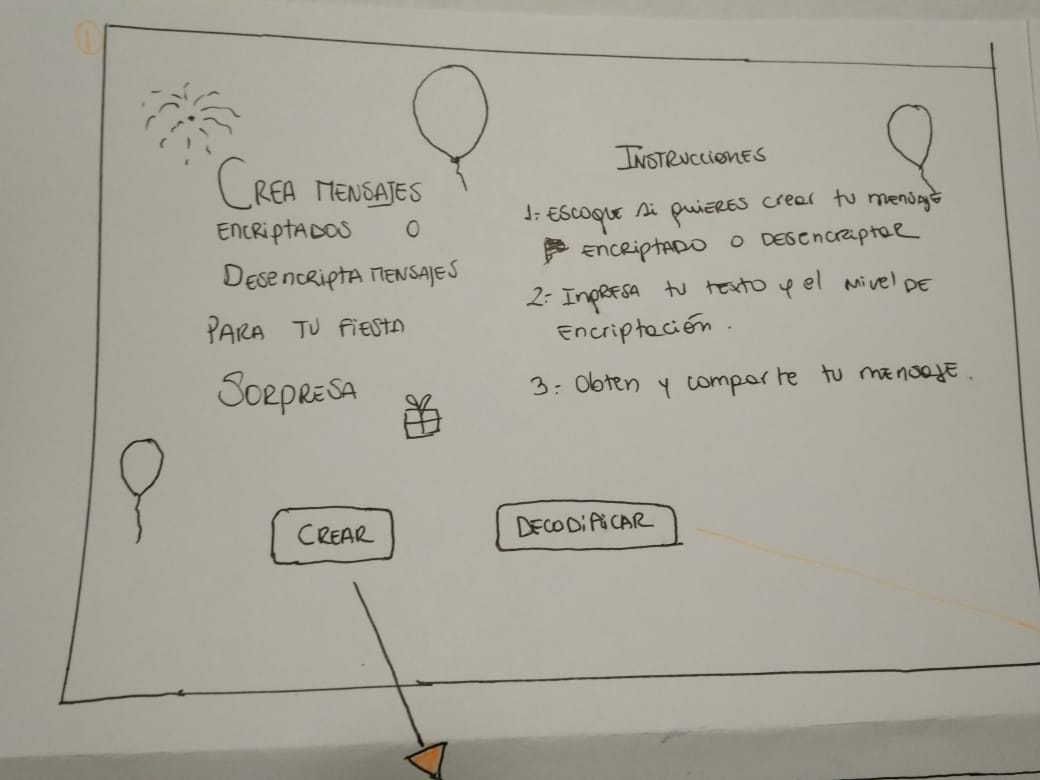 1
CREA MENSAJES
ENCRIPTADOS O
DESENCRIPTA MENSAJES
PARA TU FIESTA
SORPRESA
INSTRUCCIONES
1- ESCOGE si quiERES crear tu mensaje
ENCRIPTADO O DESENCRIPTAR
2- INGRESA tu texto y el Nivel DE
Encriptación.
3- Obten y comparte tu mensaje.
CREAR
DECODIFICAR